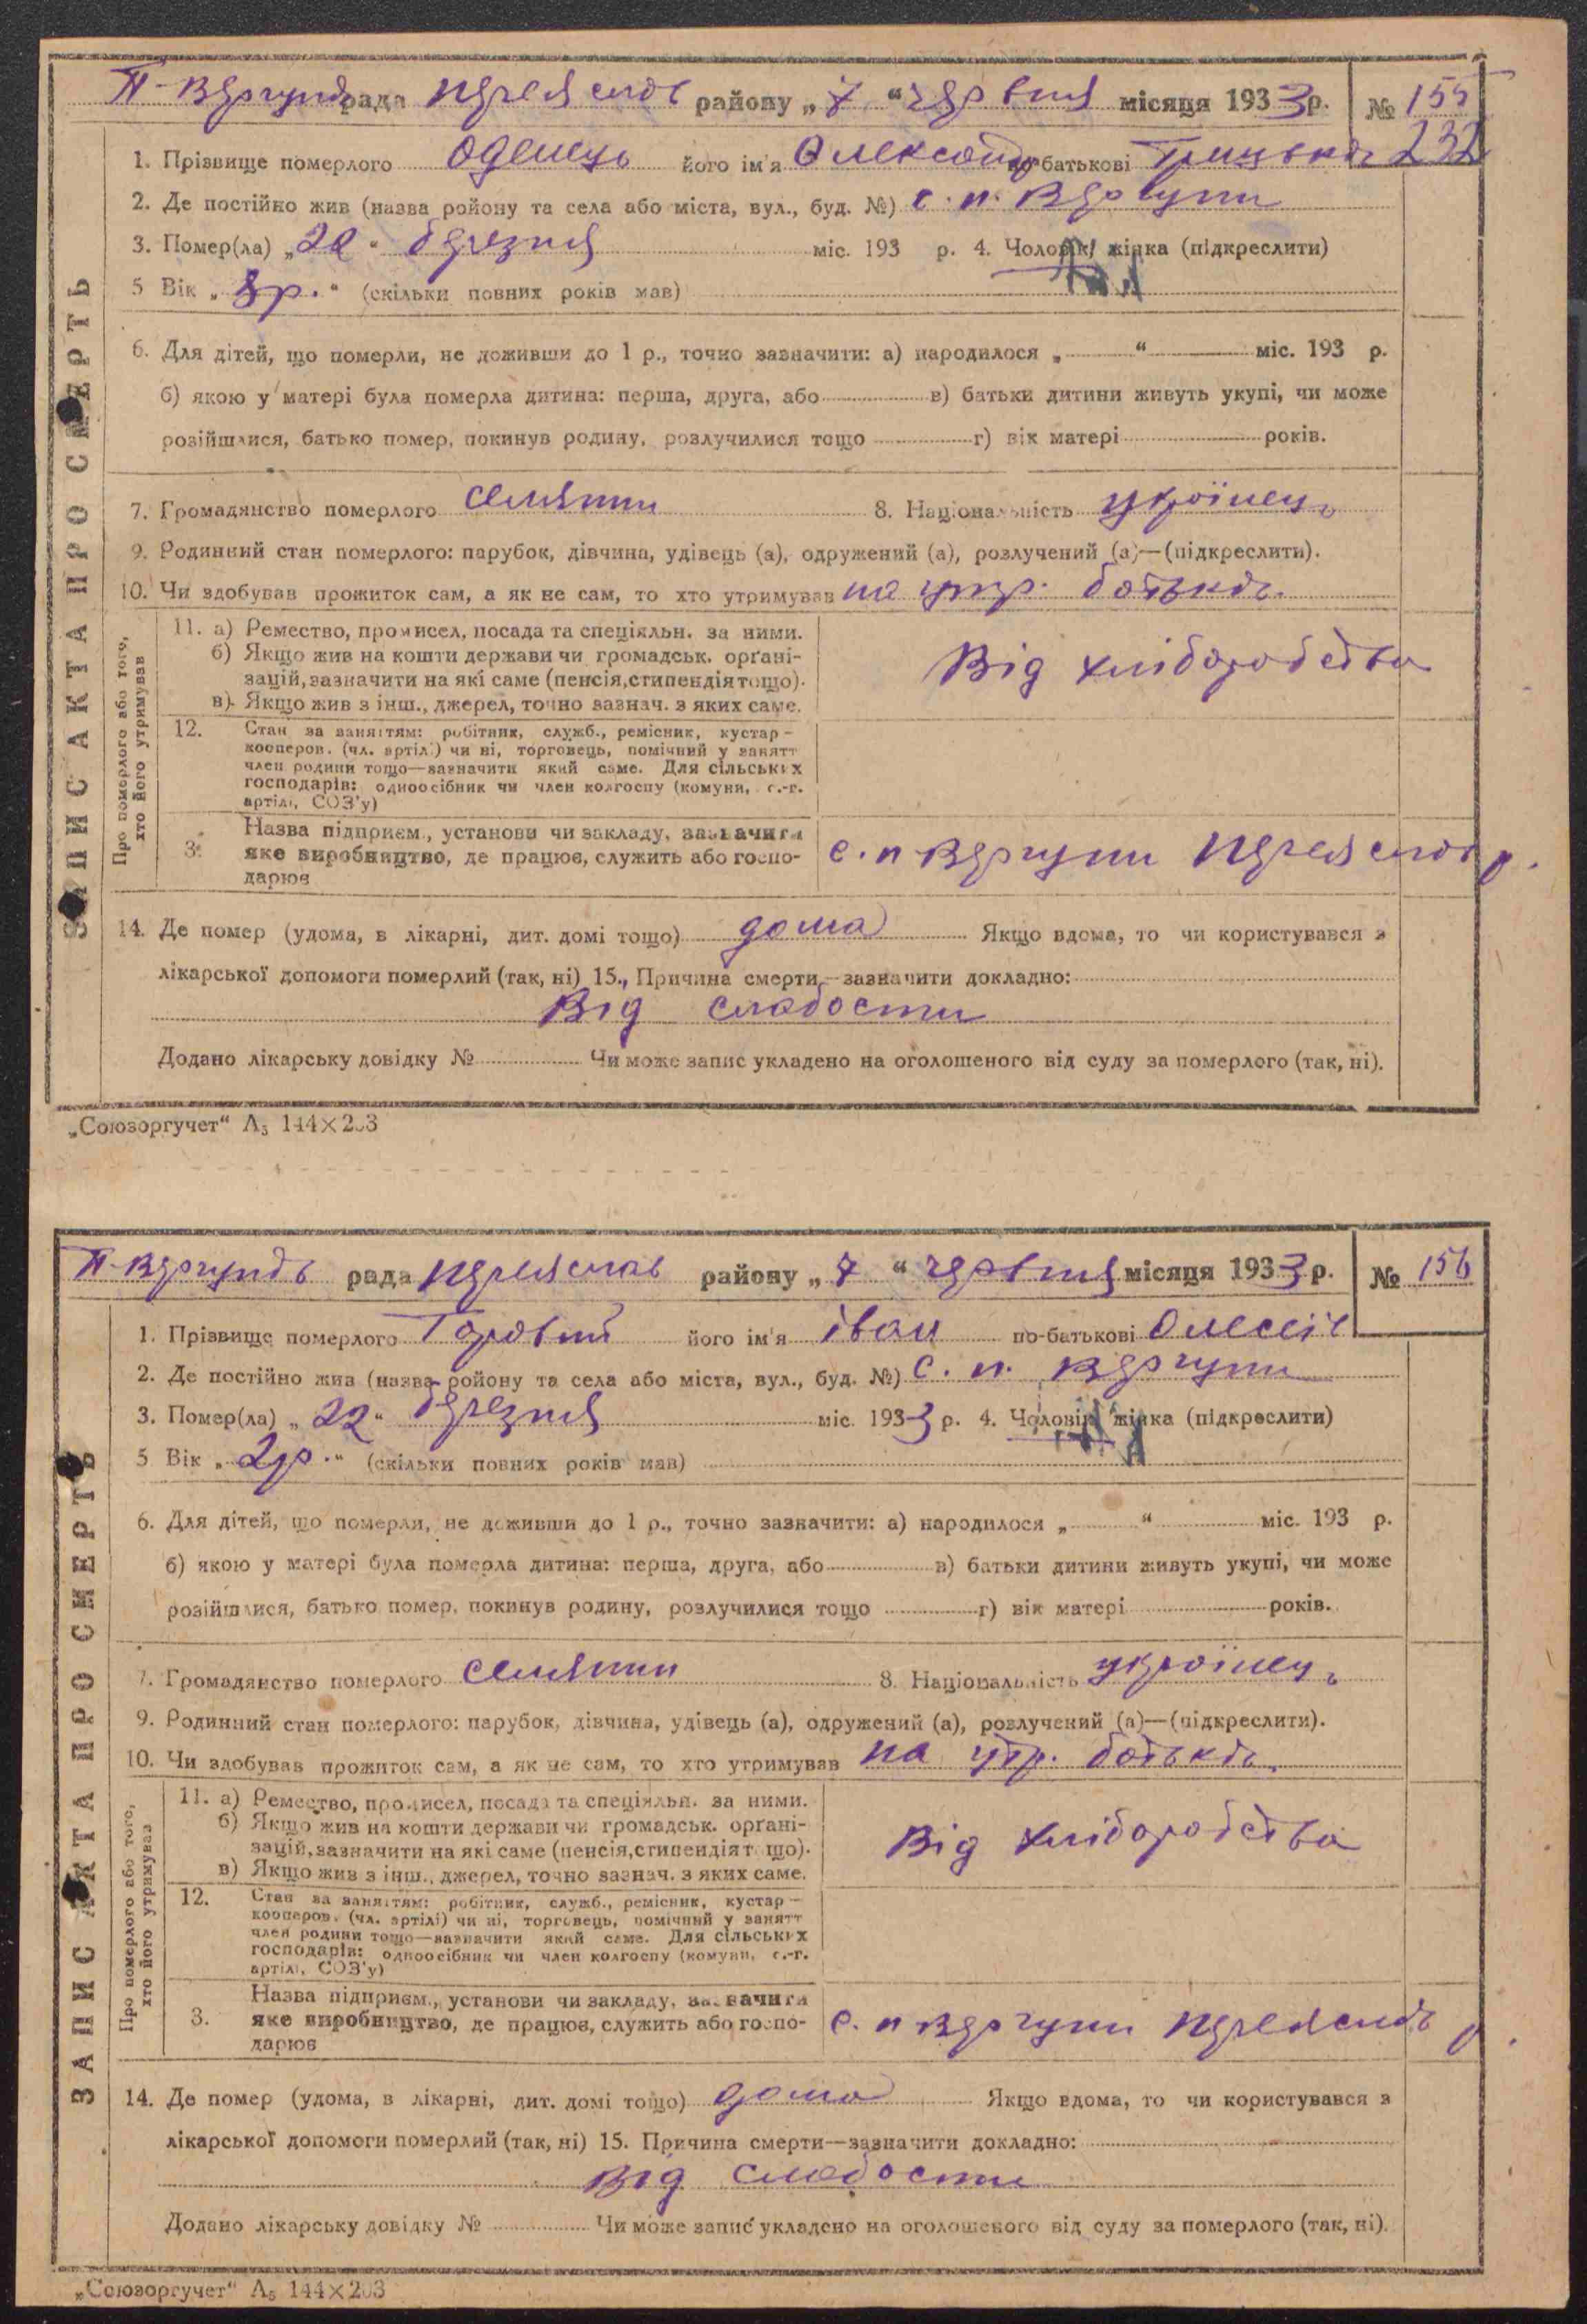 П-Вергунів рада Переяслав району „7“ червня місяця 1933 р. № 155
232
1. Прізвище померлого Оденець його ім'я Олександр по батькові Грицьків
2. Де постійно жив (назва ройону та села або міста, вул., буд. №) с. п. Вергуни
3. Помер(ла) „20“ березня міс. 193 р. 4. Чоловік, жінка (підкреслити)
5 Вік „8 р.“ (скільки повних років мав)
6. Для дітей, що померли, не доживши до 1 р., точно зазначити: а) народилося „ “ міс. 193 р.
б) якою у матері була померла дитина: перша, друга, або в) батьки дитини живуть укупі, чи може
розійшлися, батько помер, покинув родину, розлучилися тощо г) вік матері років.
7. Громадянство померлого селянин 8. Національність українець
9. Родинний стан померлого: парубок, дівчина, удівець (а), одружений (а), розлучений (а)—(підкреслити).
10. Чи здобував прожиток сам, а як не сам, то хто утримував на утр. батьків
Про померлого або того, хто його утримував
11. а) Ремество, промисел, посада та спеціяльн. за ними.
б) Якщо жив на кошти держави чи громадськ. орґані-
зацій, зазначити на які саме (пенсія, стипендія тощо).
в) Якщо жив з інш., джерел, точно зазнач. з яких саме.
Від хліборобства
12. Стан за заняттям: робітник, служб., ремісник, кустар—
кооперов. (чл. артілі) чи ні, торговець, помічний у занятт
член родини тощо—зазначити який саме. Для сільських
господарів: одноосібник чи член колгоспу (комуни, с.-г.
артілі, СОЗ'у)
3. Назва підприєм., установи чи закладу, зазначити
яке виробництво, де працює, служить або госпо-
дарює
с. п Вергуни Переяслав р.
14. Де помер (удома, в лікарні, дит. домі тощо) дома Якщо вдома, то чи користувався з
лікарської допомоги померлий (так, ні) 15. Причина смерти—зазначити докладно:
Від слабости
Додано лікарську довідку № Чи може запис укладено на оголошеного від суду за померлого (так, ні).
ЗАПИС АКТА ПРО СМЕРТЬ
„Союзоргучет“ А₅ 144×203
П-Вергунів рада Переяслав району „7“ червня місяця 1933 р. № 156
1. Прізвище померлого Горовий його ім'я Іван по-батькові Олексіїв
2. Де постійно жив (назва ройону та села або міста, вул., буд. №) с. п. Вергуни
3. Помер(ла) „22“ березня міс. 1933 р. 4. Чоловік, жінка (підкреслити)
5 Вік „2 р.“ (скільки повних років мав)
6. Для дітей, що померли, не доживши до 1 р., точно зазначити: а) народилося „ “ міс. 193 р.
б) якою у матері була померла дитина: перша, друга, або в) батьки дитини живуть укупі, чи може
розійшлися, батько помер, покинув родину, розлучилися тощо г) вік матері років.
7. Громадянство померлого селянин 8. Національність українець
9. Родинний стан померлого: парубок, дівчина, удівець (а), одружений (а), розлучений (а)—(підкреслити).
10. Чи здобував прожиток сам, а як не сам, то хто утримував на утр. батьків
Про померлого або того, хто його утримував
11. а) Ремество, промисел, посада та спеціяльн. за ними.
б) Якщо жив на кошти держави чи громадськ. орґані-
зацій, зазначити на які саме (пенсія, стипендія тощо).
в) Якщо жив з інш., джерел, точно зазнач. з яких саме.
Від хліборобства
12. Стан за заняттям: робітник, служб., ремісник, кустар—
кооперов. (чл. артілі) чи ні, торговець, помічний у занятт
член родини тощо—зазначити який саме. Для сільських
господарів: одноосібник чи член колгоспу (комуни, с.-г.
артілі, СОЗ'у)
3. Назва підприєм., установи чи закладу, зазначити
яке виробництво, де працює, служить або госпо-
дарює
с. п Вергуни Переяслів р.
14. Де помер (удома, в лікарні, дит. домі тощо) дома Якщо вдома, то чи користувався з
лікарської допомоги померлий (так, ні) 15. Причина смерти—зазначити докладно:
Від слабости
Додано лікарську довідку № Чи може запис укладено на оголошеного від суду за померлого (так, ні).
ЗАПИС АКТА ПРО СМЕРТЬ
„Союзоргучет“ А₅ 144×203